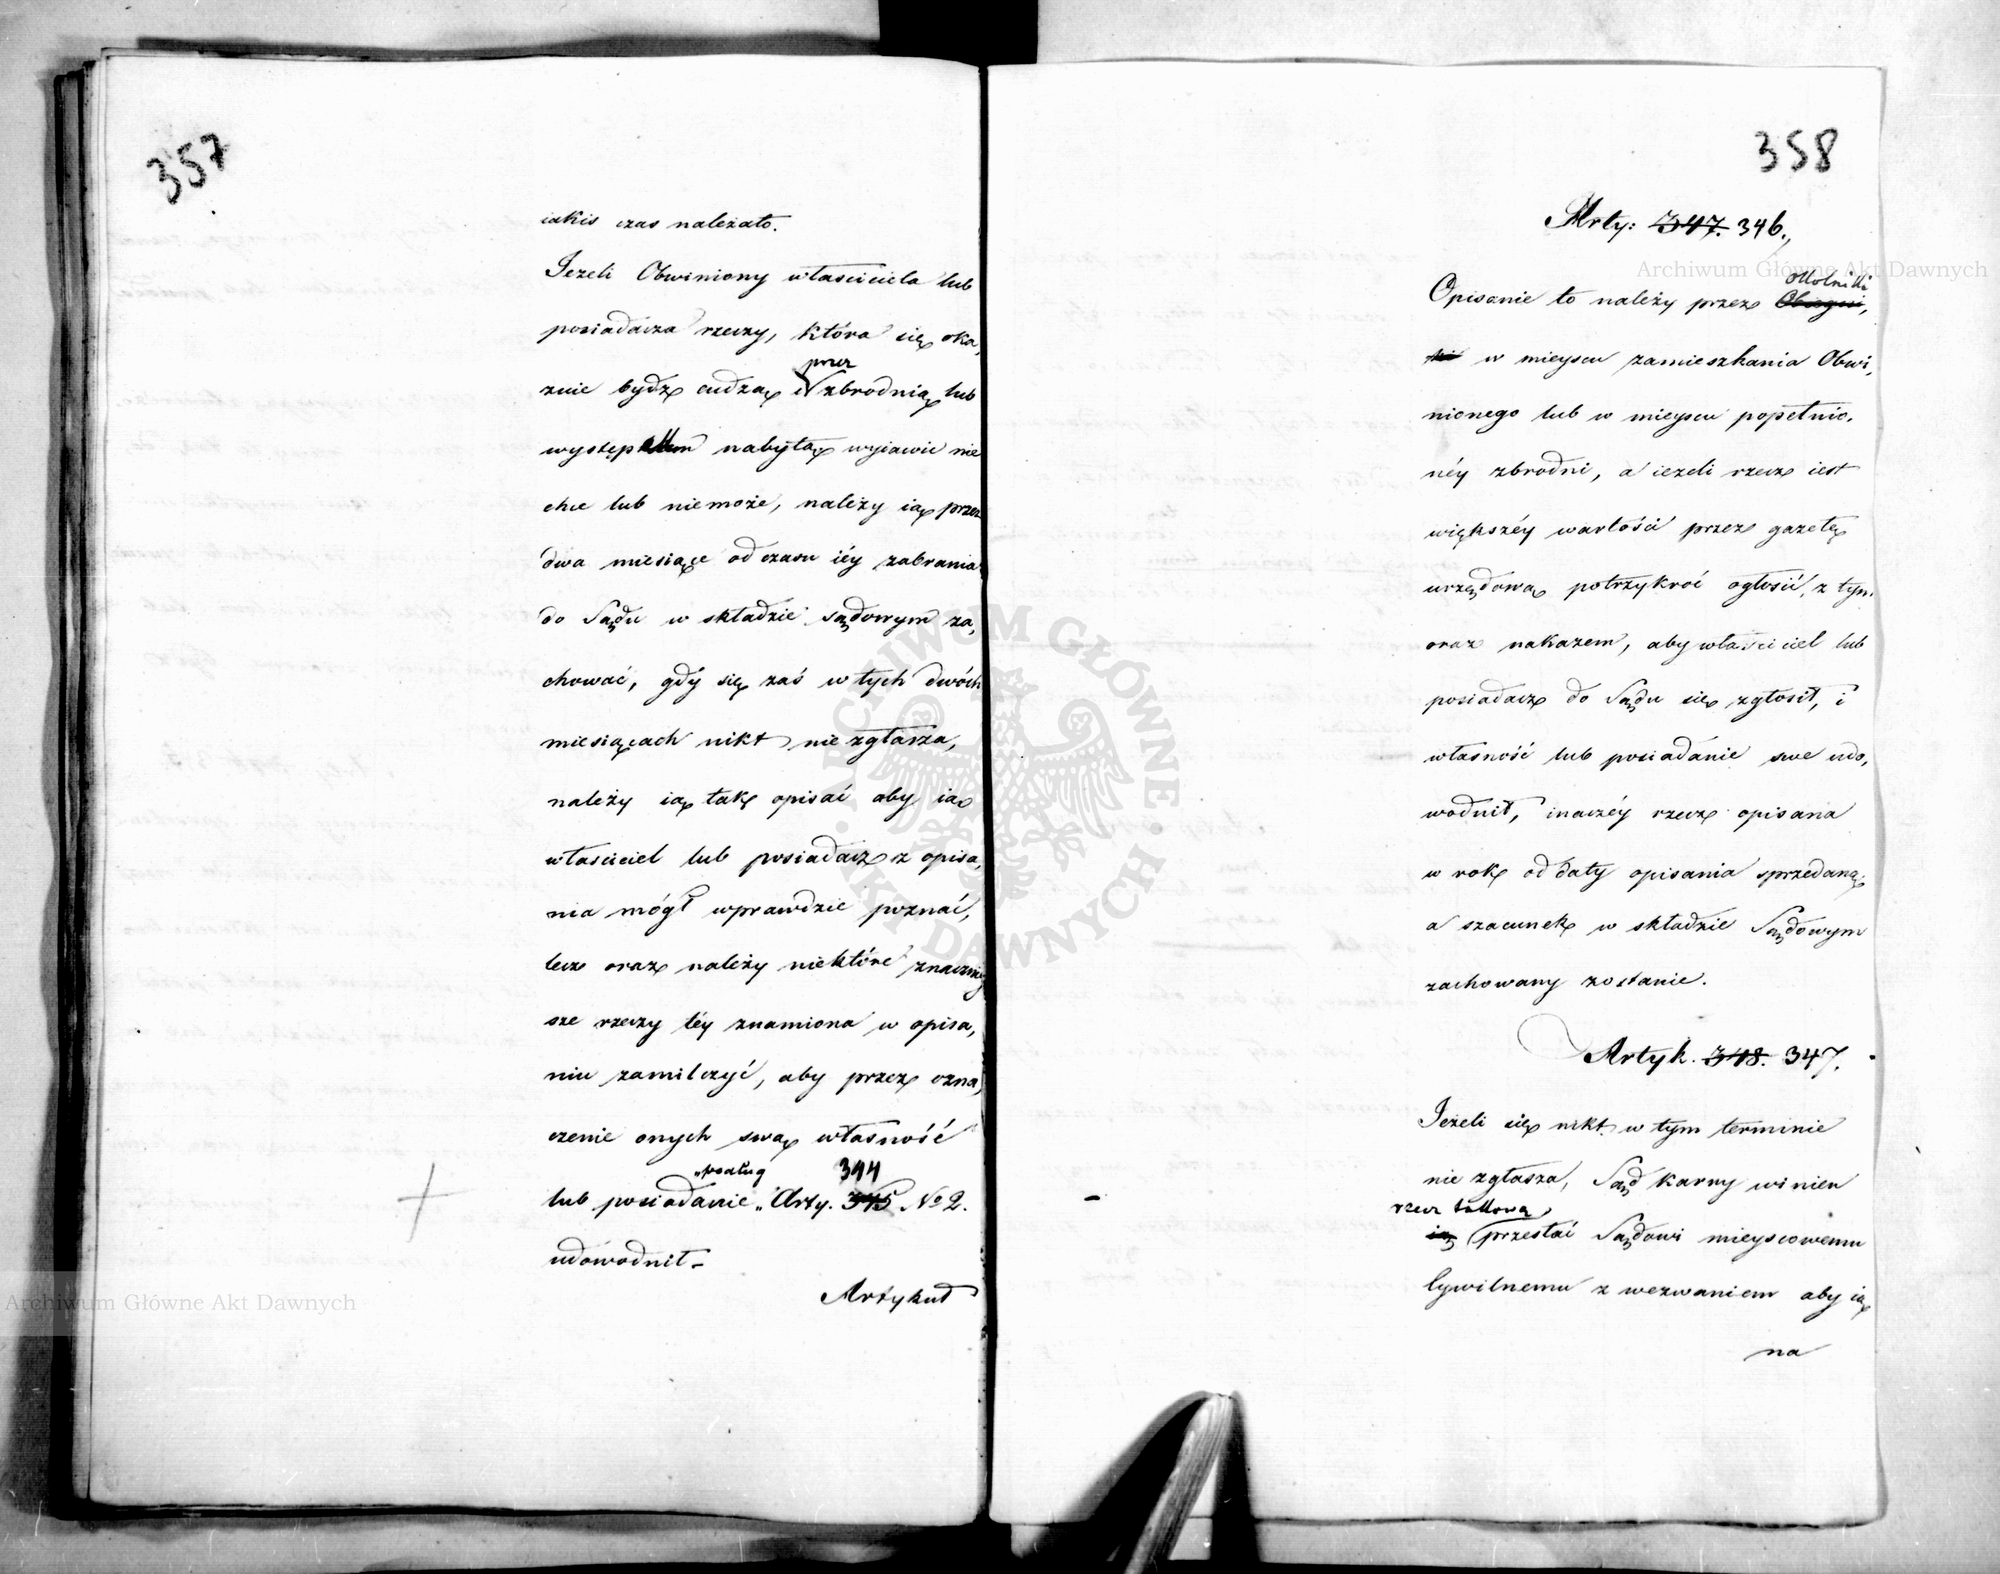 357
iakis czas należało.
Jeżeli Obwiniony właściciela lub
posiadacza rzeczy, która się oka,
zuie bydź cudzą przez zbrodnią lub
występ nabytą wyiawić nie
chce lub niemoże, należy ią przez
dwa miesiące od czasu iéy zabrania
do Sądu w składzie sądowym za,
chować, gdy się zaś w tych dwóch
miesiącach nikt nie zgłasza,
należy ią tak opisać aby ią
właściciel lub posiadacz z opisa,
nia mógł wprawdzie poznać,
lecz oraz należy niektóre znaczniey
sze rzeczy téy znamiona w opisa,
niu zamilczyć, aby przez ozna,
czenie onych swą własność
"podług 344
lub posiadanie „ Arty. 345 No 2.
udowodnił –
Artykuł
358
Arty: 347. 346.,
Okolniki
Opisanie to należy przez Obiegni,
ki w mieyscu zamieszkania Obwi,
nionego lub w mieyscu popełnio,
néy zbrodni, a ieżeli rzecz iest
większéy wartości przez gazetę
urzędową potrzykroć ogłosić, z tym
oraz nakazem, aby właściciel lub
posiadacz do Sądu się zgłosił, i
własność lub posiadanie swe udo,
wodnił, inaczéy rzecz opisana
w rok od daty opisania sprzedaną,
a szacunek w składzie Sądowym
zachowany zostanie.
Artyk. 348. 347.
Jeżeli się nikt w tym terminie
nie zgłasza, Sąd karny winien
rzecz takową
ią przesłać Sądowi mieyscowemu
Cywilnemu z wezwaniem aby ią
na
Archiwum Główne Akt Dawnych
Archiwum Główne Akt Dawnych
ARCHIWUM GŁÓWNE · AKT DAWNYCH ·